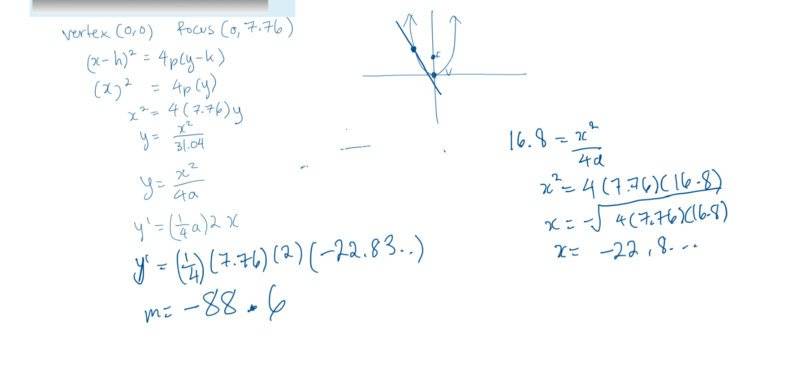 vertex (0,0) focus (0, 7.76)
(x-h)² = 4p(y-k)
(x)² = 4p(y)
x² = 4(7.76)y
y = x²/31.04
y = x²/4a
y' = (1/4 a) 2 x
y' = (1/4)(7.76)(2)(-22.83..)
m = -88.6
F
V
16.8 = x²/4a
x² = 4(7.76)(16.8)
x = -√4(7.76)(16.8)
x = -22.8...